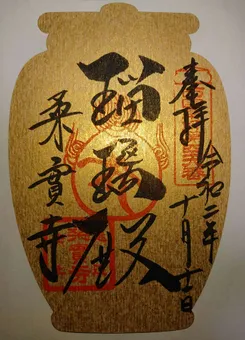 奉拝
令和二年
十月十一日
瑠璃殿
乗實寺